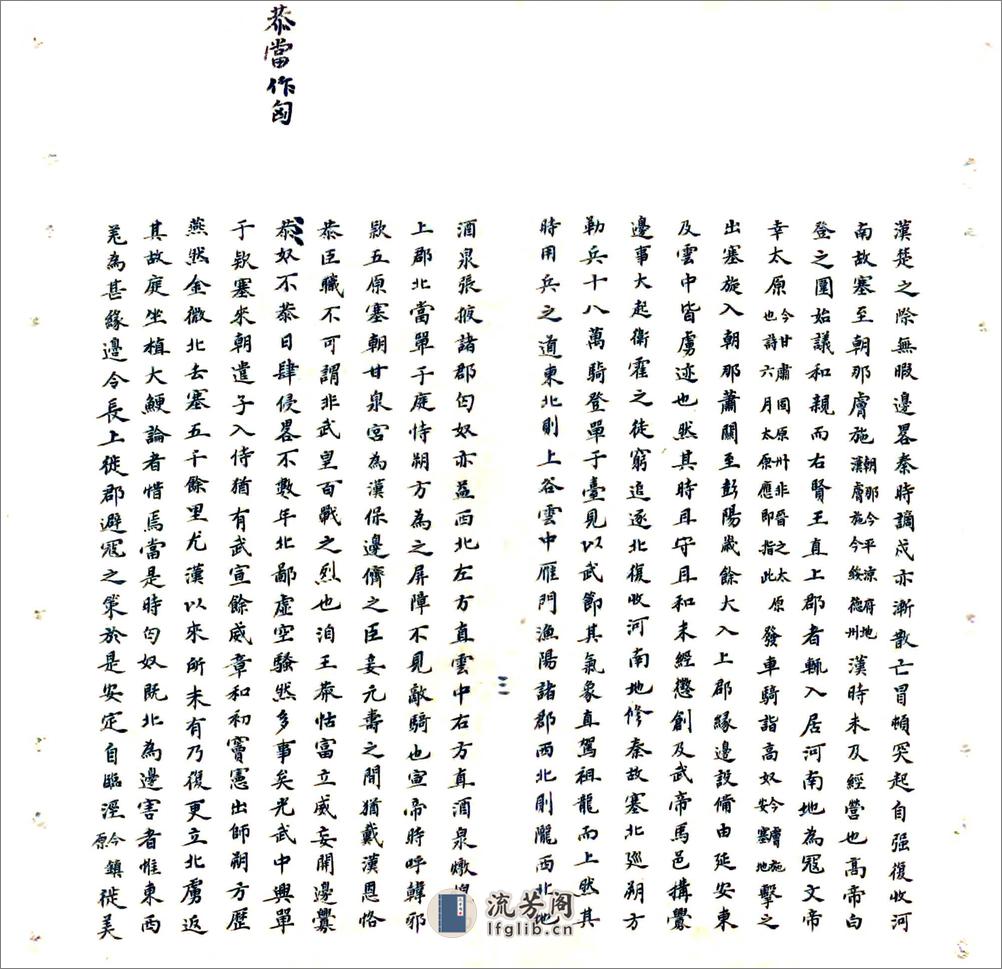 漢楚之際無暇邊畧秦時謫戍亦漸散亡冒頓突起自强復收河
南故塞至朝那膚施朝那今平涼府地漢膚施今綏德州漢時未及經營也高帝白
登之圍始議和親而右賢王直上郡者輒入居河南地為寇文帝
幸太原今甘肅固原州非晉之太原也詩六月太原應即指此發車騎詣高奴今膚施安塞地擊之
出塞旋入朝那蕭關至彭陽歲餘大入上郡緣邊設備由延安東
及雲中皆虜迹也然其時且守且和未經懲創及武帝馬邑搆釁
邊事大起衛霍之徒窮追逐北復收河南地修秦故塞北廵朔方
勒兵十八萬騎登單于臺見以武節其氣象直駕祖龍而上然其
時用兵之道東北則上谷雲中雁門漁陽諸郡西北則隴西北地
三
酒泉張掖諸郡匈奴亦益西北左方直雲中右方直酒泉燉煌
上郡北當單于庭恃朔方為之屏障不見敵騎也宣帝時呼韓邪
欵五原塞朝甘泉宮為漢保邊儕之臣妾元壽之間猶戴漢恩恪
恭臣職不可謂非武皇百戰之烈也洎王莽怙富立威妄開邊釁
恭奴不恭日肆侵畧不數年北鄙虛空騷然多事矣光武中興單
于欵塞來朝遣子入侍猶有武宣餘威章和初竇憲出師朔方歷
燕然金微北去塞五千餘里尤漢以來所未有乃復更立北虜返
其故庭坐植大鯁論者惜焉當是時匈奴既北為邊害者惟東西
羌為甚緣邊令長上徙郡避寇之策於是安定自臨涇今鎮原徙美
恭當作匈
流芳阁
lfglib.cn